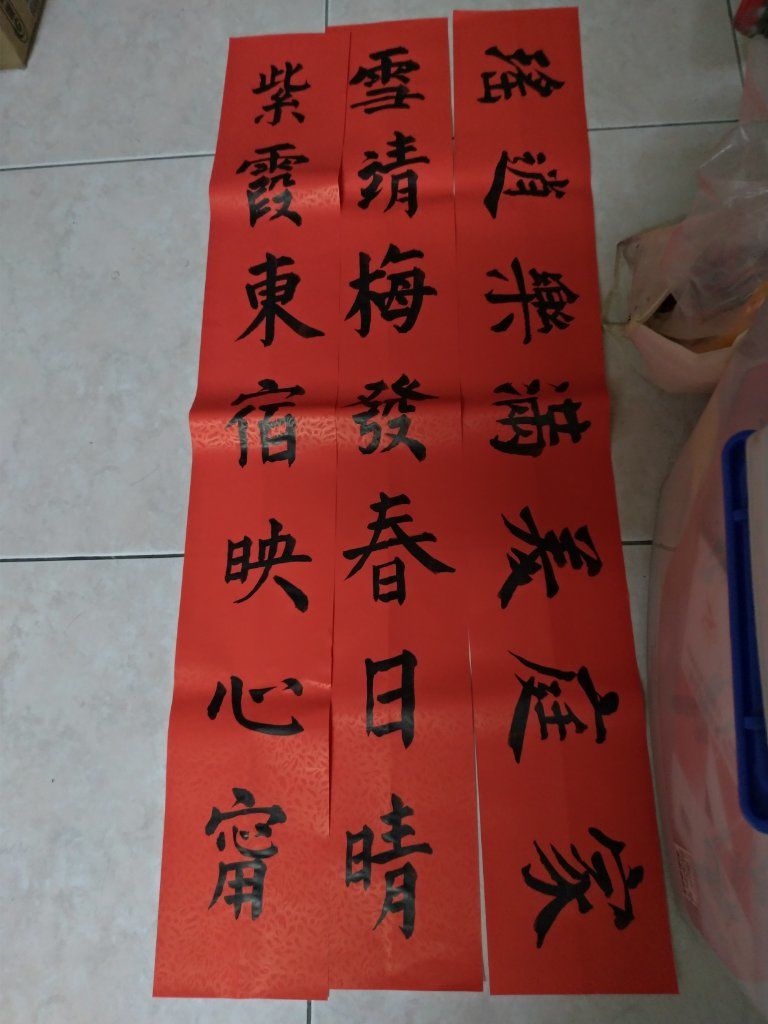 家庭美滿樂逍遙
雪靖梅發春日晴
紫霞東宿映心甯